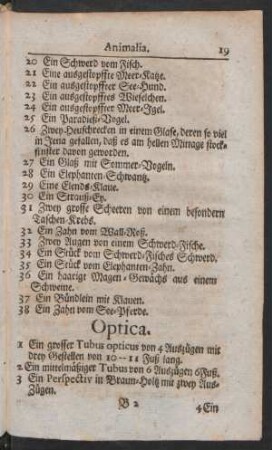 Animalia. 19
20 Ein Schwerd vom Fisch.
21 Eine ausgestopffte Meer-Katze.
22 Ein ausgestopffter See-Hund.
23 Ein ausgestopfftes Wieselchen.
24 Ein ausgestopffter Meer-Igel.
25 Ein Paradieß-Vogel.
26 Zwey-Heuschrecken in einem Glase, deren so viel
in Jena gefallen, daß es am hellen Mittage stock-
finster davon geworden.
27 Ein Glaß mit Sommer-Vogeln.
28 Ein Elephanten-Schwantz.
29 Eine Elends-Klaue.
30 Ein Strauß-Ey.
31 Zwey grosse Scheeren von einem besondern
Taschen-Krebs.
32 Ein Zahn vom Wall-Roß.
33 Zwey Augen von einem Schwerd-Fische.
34 Ein Stück vom Schwerd-Fisches Schwerd.
35 Ein Stück vom Elephanten-Zahn.
36 Ein haarigt Magen-Gewächs aus einem
Schweine.
37 Ein Bündlein mit Klauen.
38 Ein Zahn vom See-Pferde.
Optica.
1 Ein grosser Tubus opticus von 4 Auszügen mit
drey Gestellen von 10--11 Fuß lang.
2 Ein mittelmäßiger Tubus von 6 Auszügen 6 Fuß.
3 Ein Perspectiv in Braun-Holtz mit zwey Aus-
Zügen.
B 2 4 Ein